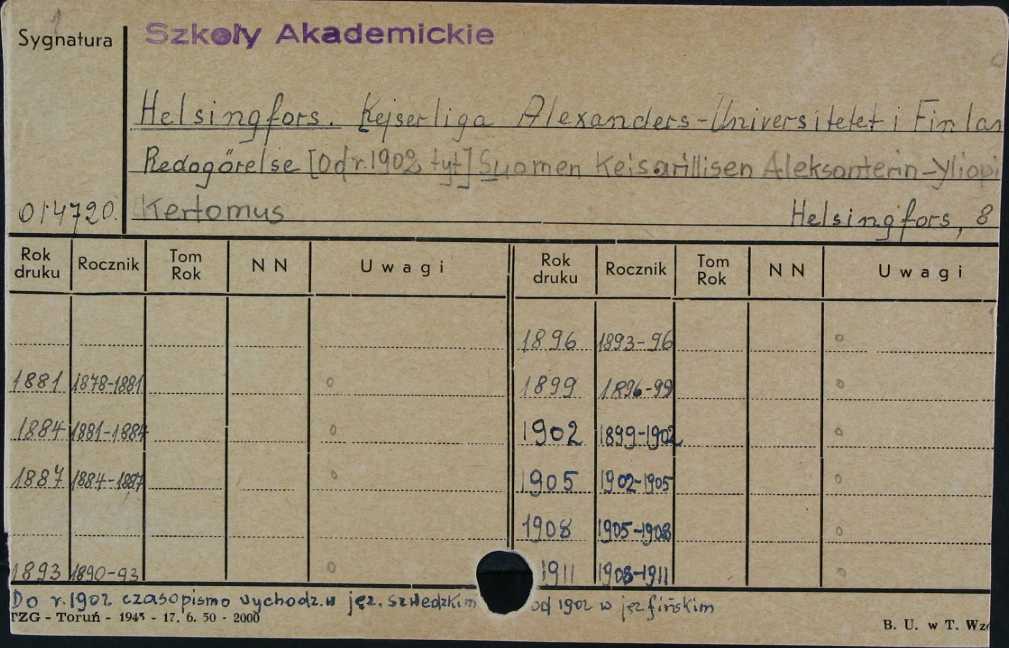 Sygnatura
Szkoły Akademickie
Helsingfors. Kejserliga Alexanders-Universitetet i Finlan
Redogörelse [Od r. 1902 tyt] Suomen Keisarillisen Aleksanterin-Yliopi
014720. Kertomus Helsingfors, 8
Rok druku Rocznik Tom Rok NN Uwagi Rok druku Rocznik Tom Rok NN Uwagi
1896 1893-96
1881 1878-1881 1899 1896-99
1884 1881-1884 1902 1899-1902
1887 1884-1887 1905 1902-1905
1908 1905-1908
1893 1890-93 1911 1908-1911
Do r. 1902 czasopismo wychodz. w jęz. szwedzkim od 1902 w jęz fińskim
TZG - Toruń - 1945 - 17. 6. 50 - 2000 B. U. w T. Wzó